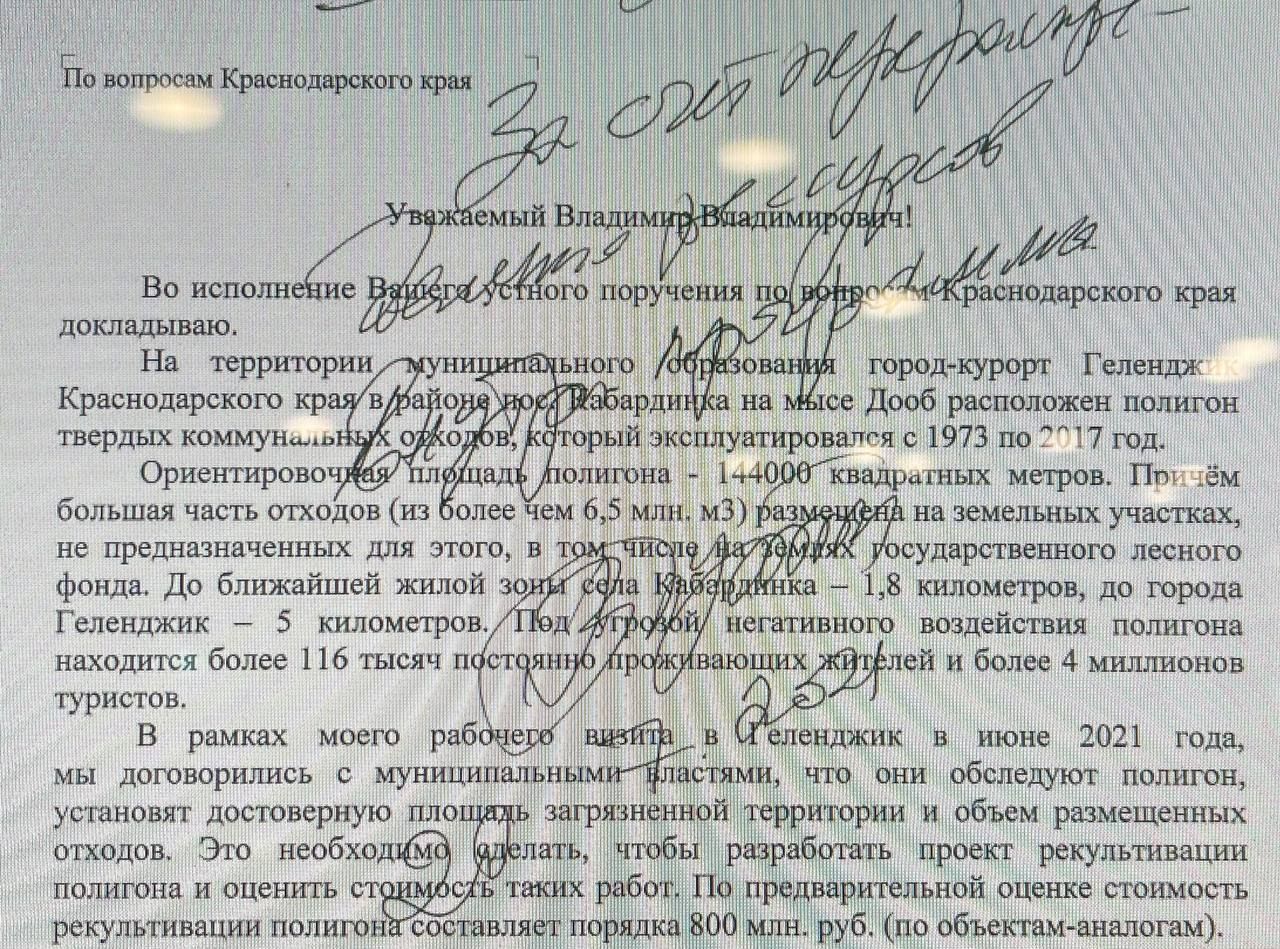 По вопросам Краснодарского края
За счёт перераспре-
деления ресурсов
Уважаемый Владимир Владимирович!
программы
Во исполнение Вашего устного поручения по вопросам Краснодарского края
докладываю.
На территории муниципального образования город-курорт Геленджик
Краснодарского края в районе пос. Кабардинка на мысе Дооб расположен полигон
твердых коммунальных отходов, который эксплуатировался с 1973 по 2017 год.
Ориентировочная площадь полигона - 144000 квадратных метров. Причём
большая часть отходов (из более чем 6,5 млн. м3) размещена на земельных участках,
не предназначенных для этого, в том числе на землях государственного лесного
фонда. До ближайшей жилой зоны села Кабардинка – 1,8 километров, до города
Геленджик – 5 километров. Под угрозой негативного воздействия полигона
находится более 116 тысяч постоянно проживающих жителей и более 4 миллионов
туристов.
В рамках моего рабочего визита в Геленджик в июне 2021 года,
мы договорились с муниципальными властями, что они обследуют полигон,
установят достоверную площадь загрязненной территории и объем размещенных
отходов. Это необходимо сделать, чтобы разработать проект рекультивации
полигона и оценить стоимость таких работ. По предварительной оценке стоимость
рекультивации полигона составляет порядка 800 млн. руб. (по объектам-аналогам).